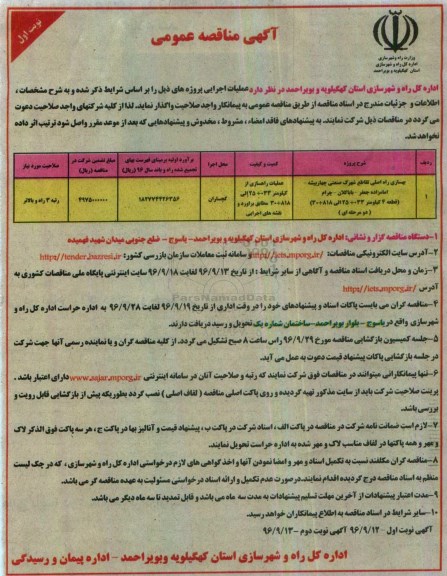 نوبت اول
آگهی مناقصه عمومی
وزارت راه و شهرسازی
اداره کل راه و شهرسازی
استان کهگیلویه و بویراحمد
اداره کل راه و شهرسازی استان کهگیلویه و بویراحمد در نظر دارد عملیات اجرایی پروژه های ذیل را بر اساس شرایط ذکر شده و به شرح مشخصات ،
اطلاعات و جزئیات مندرج در اسناد مناقصه از طریق مناقصه عمومی به پیمانکار واجد صلاحیت واگذار نماید. لذا از کلیه شرکتهای واجد صلاحیت دعوت
می گردد در مناقصات ذیل شرکت نمایند. به پیشنهادهای فاقد امضاء ، مشروط ، مخدوش و پیشنهادهایی که بعد از موعد مقرر واصل شود ترتیب اثر داده
نخواهد شد.
ردیف شرح پروژه کمیت و کیفیت محل اجرا برآورد اولیه برمبنای فهرست بهای تجمیع شده راه و باند سال ۹۶ (ریال) مبلغ تضمین شرکت در مناقصه (ریال) صلاحیت مورد نیاز
۱ بهسازی راه اصلی تقاطع شهرک صنعتی چهاربیشه - امامزاده جعفر - باباکلان - چرام
(دو مرحله ای)
عملیات راهسازی از کیلومتر
مطابق برآورد و نقشه های اجرایی
گچساران
رتبه ۳ راه و بالاتر
۱-دستگاه مناقصه گزار و نشانی: اداره کل راه و شهرسازی استان کهگیلویه و بویراحمد- یاسوج - ضلع جنوبی میدان شهید فهمیده
۲-آدرس سایت الکترونیکی مناقصات: http://iets.mporg.ir و سامانه ثبت معاملات سازمان بازرسی کشور: http://tender.bazresi.ir
۳-زمان و محل دریافت اسناد مناقصه و آگاهی از سایر شرایط : از تاریخ ۹۶/۹/۱۳ لغایت ۹۶/۹/۱۸ سایت اینترنتی پایگاه ملی مناقصات کشوری به
آدرس http://iets.mporg.ir
۴-مناقصه گران می بایست پاکات اسناد و پیشنهادهای خود را در وقت اداری از تاریخ ۹۶/۹/۱۹ لغایت ۹۶/۹/۲۸ به اداره حراست اداره کل راه و
شهرسازی واقع در یاسوج - بلوار بویراحمد -ساختمان شماره یک تحویل و رسید دریافت دارند.
۵-جلسه کمیسیون بازگشایی مناقصه مورخ ۹۶/۹/۲۹ راس ساعت ۸ صبح تشکیل می گردد. از کلیه مناقصه گران و یا نماینده رسمی آنها جهت شرکت
در جلسه بازگشایی پاکات پیشنهاد قیمت دعوت به عمل می آید.
۶-تنها پیمانکارانی میتوانند در مناقصات فوق شرکت نمایند که رتبه و صلاحیت آنان در سامانه اینترنتی www.sajar.mporg.ir دارای اعتبار باشد .
پرینت صلاحیت شرکت باید از سایت مذکور تهیه گردیده و روی پاکت اصلی مناقصه ( لفاف اصلی ) نصب گردد بطوریکه پیش از بازگشایی قابل رویت و
بررسی باشد.
۷-لازم است ضمانت نامه شرکت در مناقصه در پاکت الف ، اسناد شرکت در پاکت ب ، پیشنهاد قیمت و آنالیز بها در پاکت ج ، هر سه پاکت فوق الذکر لاک
و مهر و همه پاکتها در لفاف مناسب لاک و مهر شده به اداره حراست تحویل نمایند.
۸-مناقصه گران مکلفند نسبت به تکمیل اسناد و مهر و امضا نمودن آنها و اخذ گواهی های لازم درخواستی اداره کل راه و شهرسازی ، که در چک لیست
منظم به اسناد مناقصه درج گردیده اقدام نمایند. در صورت عدم تکمیل و ارائه اسناد درخواستی مسئولیت به عهده مناقصه گر می باشد.
۹-مدت اعتبار پیشنهادات از آخرین مهلت تسلیم پیشنهادات به مدت سه ماه می باشد و قابل تمدید تا سه ماه دیگر می باشد.
۱۰-سایر شرایط در اسناد مناقصه به اطلاع پیمانکاران خواهد رسید.
آگهی نوبت اول - ۹۶/۹/۱۲ آگهی نوبت دوم - ۹۶/۹/۱۳
اداره کل راه و شهرسازی استان کهگیلویه وبویراحمد - اداره پیمان و رسیدگی
ParsNamadData